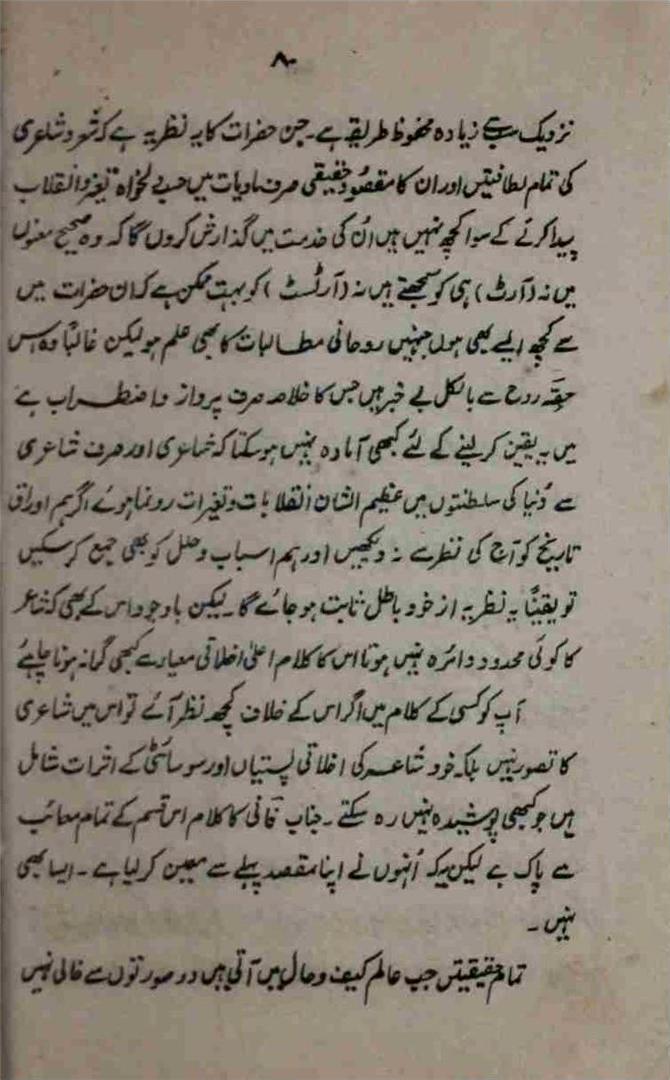 ۸۰
نزدیک سب سے زیادہ محفوظ طریقہ ہے۔ جن حضرات کا یہ نظریہ ہے کہ شعر و شاعری
کی تمام لطافتیں اور ان کا مقصود حقیقی صرف مادیات میں حسب لخواہ تغیر و انقلاب
پیدا کرنے کے سوا کچھ نہیں ہیں اُن کی خدمت میں گذارش کروں گا کہ وہ صحیح معنوں
میں نہ (آرٹ) ہی کو سمجھتے ہیں نہ (آرٹسٹ) کو بہت ممکن ہے کہ ان حضرات میں
سے کچھ ایسے بھی ہوں جنہیں روحانی مطالبات کا بھی علم ہو لیکن غالباً وہ اس
حصّہ روح سے بالکل بے خبر ہیں جس کا خلاصہ صرف پرواز و اضطراب ہے
میں یہ یقین کر لینے کے لئے کبھی آمادہ نہیں ہو سکتا کہ شاعری اور صرف شاعری
سے دُنیا کی سلطنتوں میں عظیم الشان انقلابات و تغیرات رونما ہوئے اگر ہم اوراق
تاریخ کو آج کی نظر سے نہ دیکھیں اور ہم اسباب و علل کو بھی جمع کر سکیں
تو یقیناً یہ نظریہ از خود باطل ثابت ہو جائے گا۔ لیکن باوجود اس کے بھی کہ شاعر
کا کوئی محدود دائرہ نہیں ہوتا اس کا کلام اعلیٰ اخلاقی معیار سے کبھی گرا نہ ہونا چاہئے
آپ کو کسی کے کلام میں اگر اس کے خلاف کچھ نظر آئے تو اس میں شاعری
کا قصور نہیں بلکہ خود شاعر کی اخلاقی پستیاں اور سوسائٹی کے اثرات شامل
ہیں جو کبھی پوشیدہ نہیں رہ سکتے۔ جناب فانی کا کلام اس قسم کے تمام معائب
سے پاک ہے لیکن یہ کہ اُنہوں نے اپنا مقصد پہلے سے معین کر لیا ہے۔ ایسا بھی
نہیں۔
تمام حقیقتیں جب عالم کیف و حال میں آتی ہیں دو صورتوں سے خالی نہیں